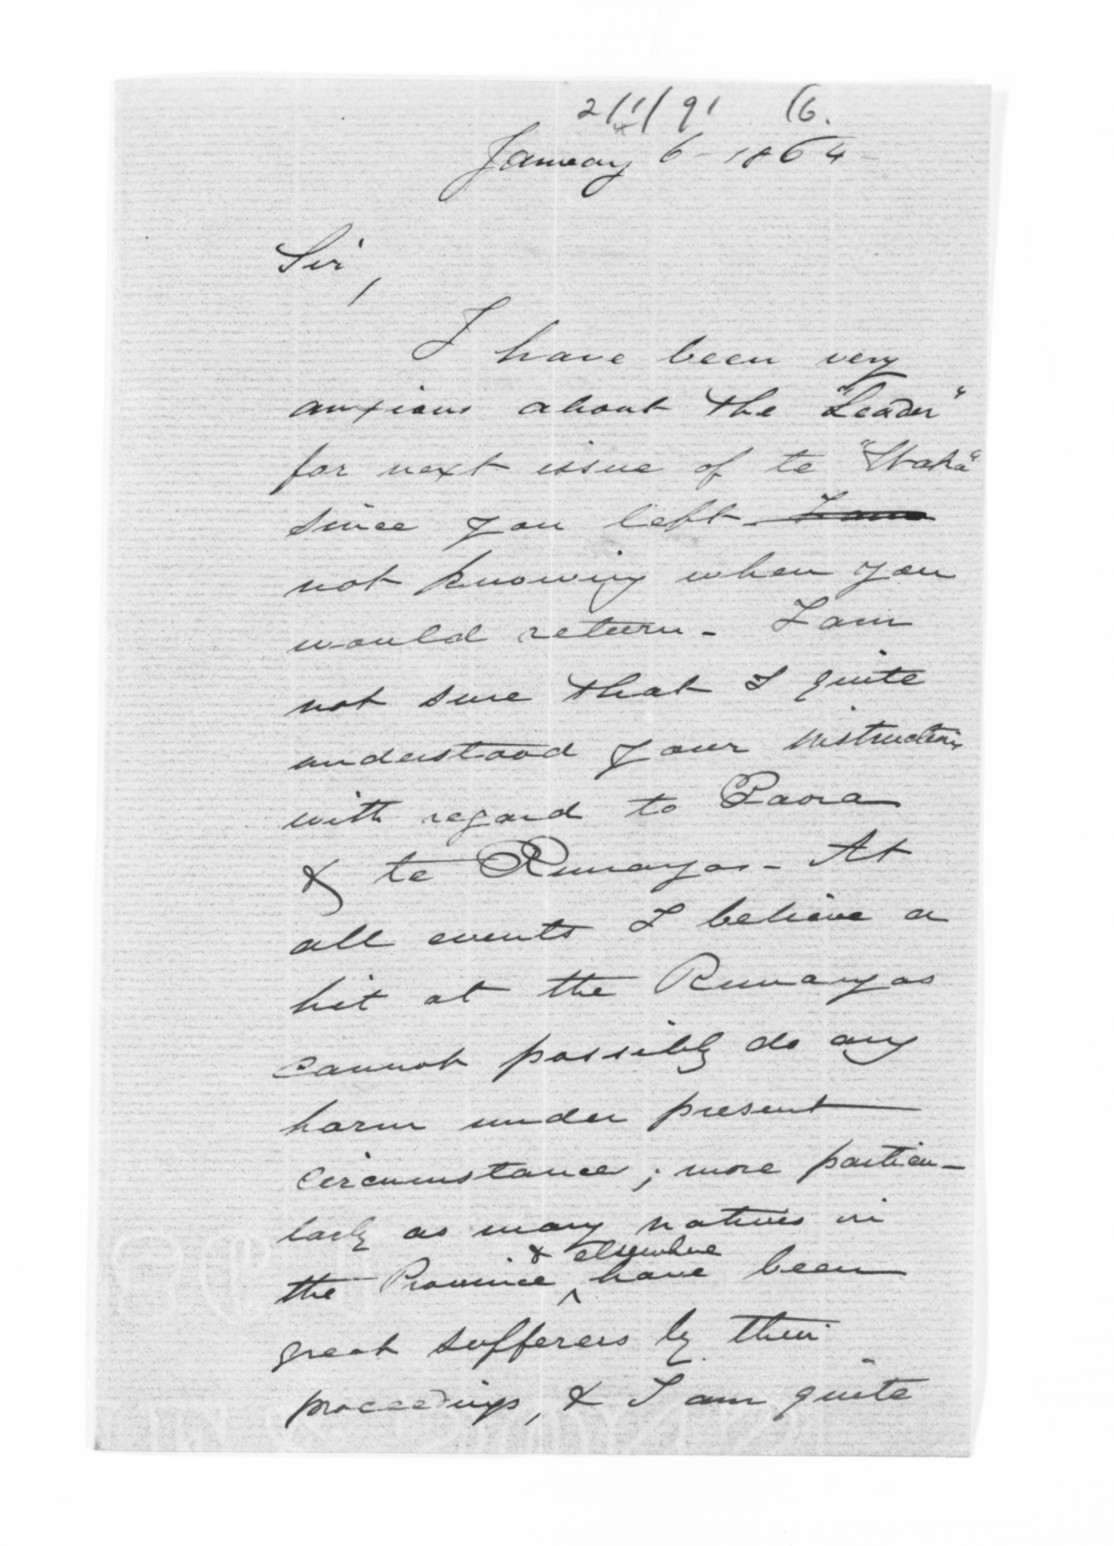 2/1/91 (6.
January 6 - 1864 -
Sir,
I have been very
anxious about the "Leader"
for next issue of te "Waka"
since you left - I am
not knowing when you
would return - I am
not sure that I quite
understood your instructions
with regard to Paora
& te Runangas - At
all events I believe a
hit at the Runangas
cannot possibly do any
harm under present
circumstance; more particu-
larly as many natives in
& elsewhere
the Province ^ have been
great sufferers by their
proceedings, & I am quite